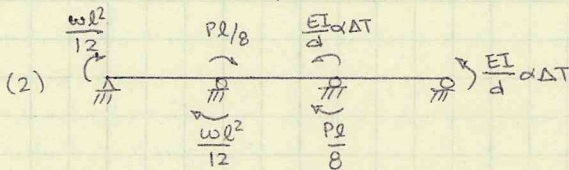 wl²/12
Pl/8
EI/d αΔT
EI/d αΔT
(2)
wl²/12
Pl/8